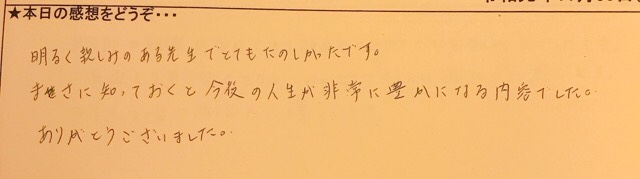 ★本日の感想をどうぞ・・・
明るく親しみのある先生でとてもたのしかったです。
まさに知っておくと今後の人生が非常に豊かになる内容でした。
ありがとうございました。